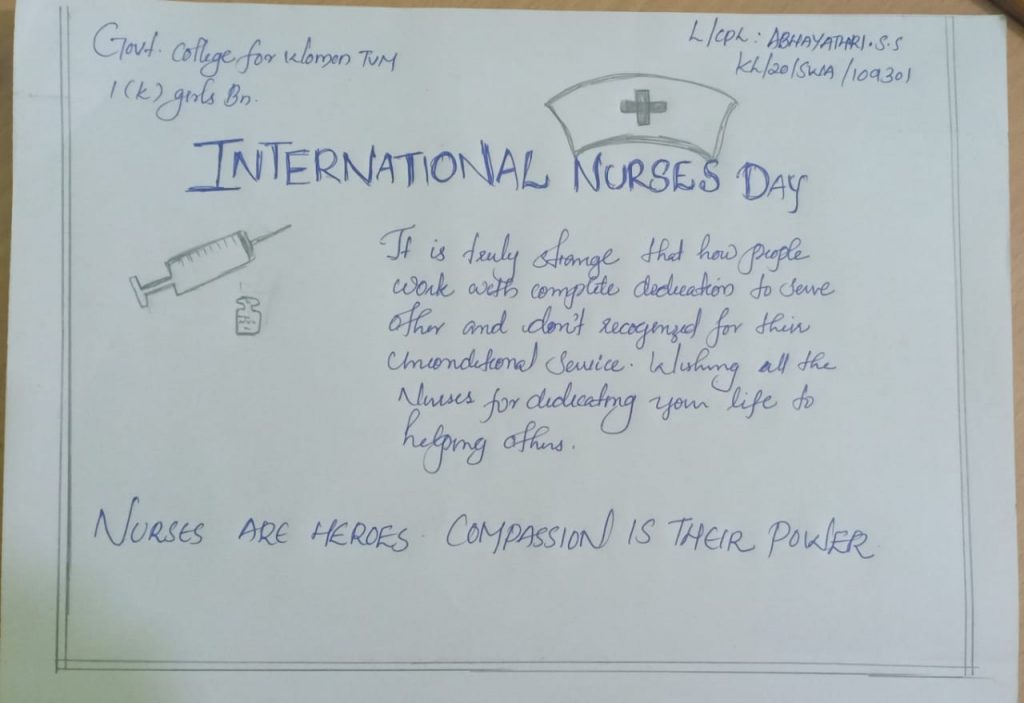 Govt. College for Women TVM
1 (K) girls Bn.
L/CPL: ABHAYATHRI.S.S
KL/20/SWA/109301
INTERNATIONAL NURSES DAY
It is truly strange that how people
work with complete dedication to serve
other and don't recognized for their
Unconditional Service. Wishing all the
Nurses for dedicating your life to
helping others.
NURSES ARE HEROES. COMPASSION IS THEIR POWER.